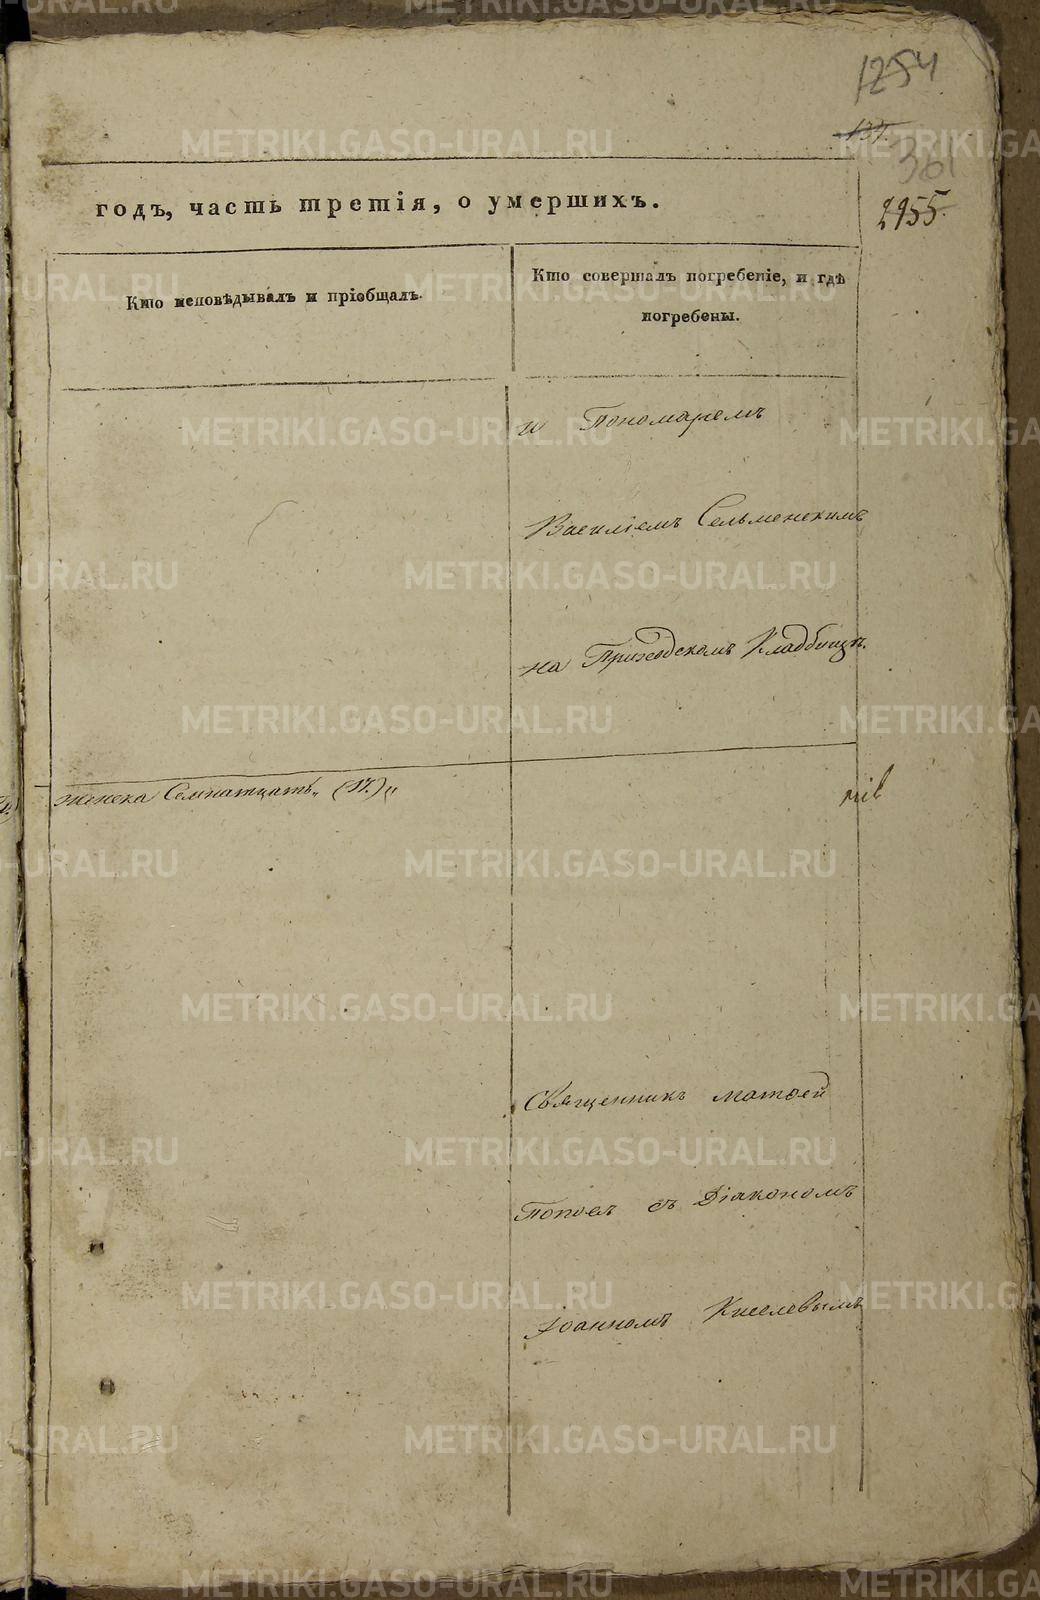 1254
137.
361
годъ, часть третія, о умершихъ.
2955.
Кто исповѣдывалъ и пріобщалъ.
Кто совершалъ погребеніе, и гдѣ
погребены.
и Пономаремъ
Василіемъ Сельменскимъ
на Приходскомъ Кладбищѣ.
женска Семнатцать„ (17.)„
Священникъ Матѳей
Поповъ съ Діакономъ
Іоанномъ Киселевымъ
METRIKI.GASO-URAL.RU